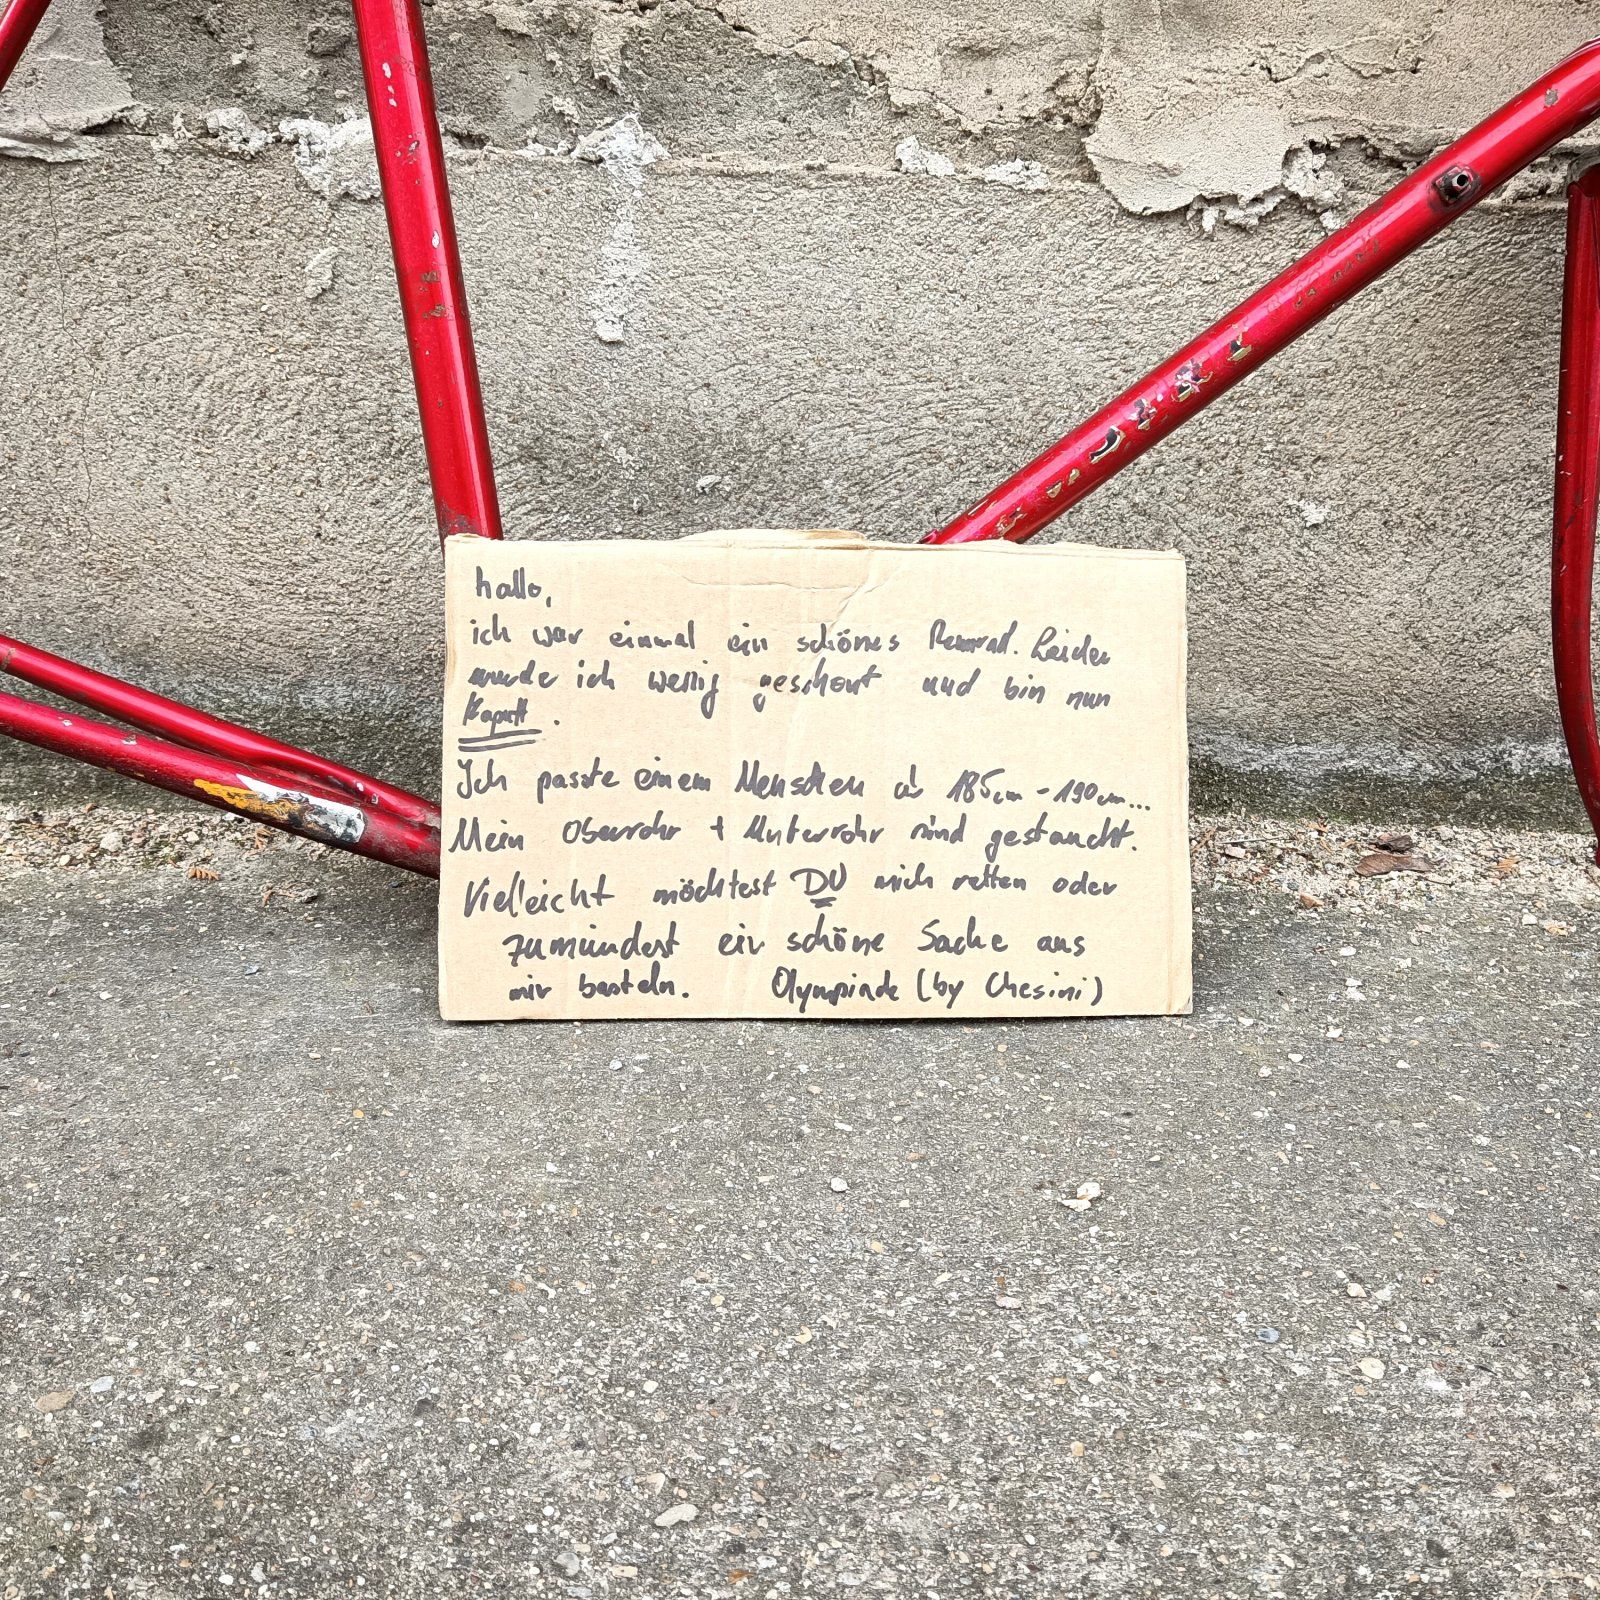 hallo,
ich war einmal ein schönes Rennrad. Leider
wurde ich wenig geschont und bin nun
Kaputt.
Ich passte einem Menschen ab 185cm - 190cm...
Mein Oberrohr + Unterrohr sind gestaucht.
Vielleicht möchtest DU mich retten oder
zumindest ein schöne Sache aus
mir basteln. Olympiade (by Chesini)